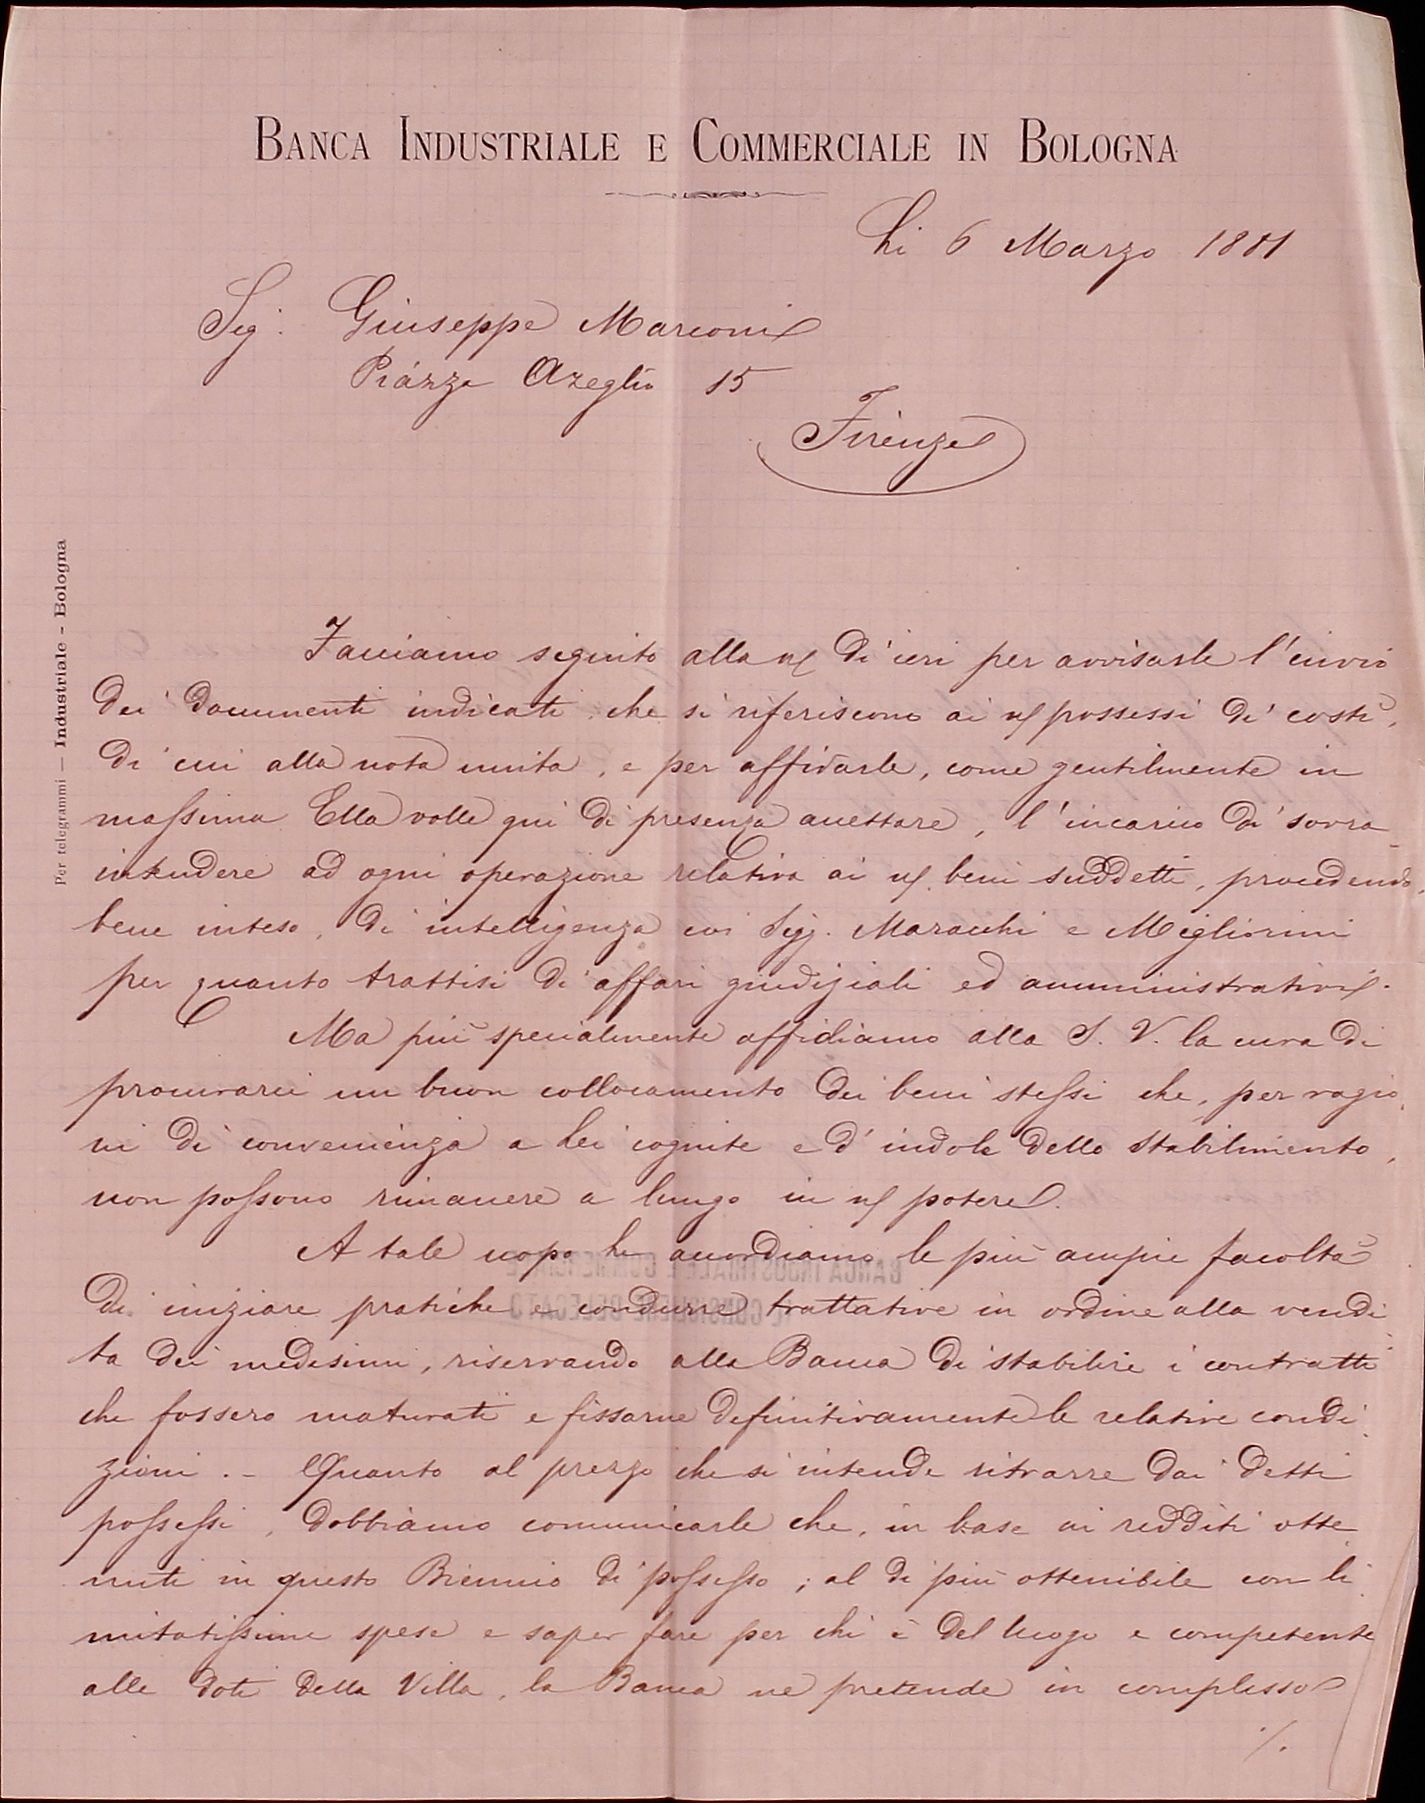 BANCA INDUSTRIALE E COMMERCIALE IN BOLOGNA
Li 6 Marzo 1881
Sig. Giuseppe Marconi
Piazza Azeglio 15
Firenze
Per telegrammi — Industriale - Bologna
Facciamo seguito alla n/ di ieri per avvisarle l'invio
dei documenti indicati che si riferiscono ai n/ possessi di costì,
di cui alla nota unita, e per affidarle, come gentilmente in
massima Ella volle qui di presenza accettare, l'incarico di sovra
intendere ad ogni operazione relativa ai n/ beni suddetti, procedendo,
bene inteso, di intelligenza coi Sigg. Maracchi e Migliorini
per quanto trattisi di affari giudiziali ed amministrativi.
Ma più specialmente affidiamo alla S. V. la cura di
procurarci un buon collocamento dei beni stessi che, per ragio
ni di convenienza a Lei cognite e d'indole dello Stabilimento,
non possono rimanere a lungo in n/ potere.
A tale uopo Le accordiamo le più ampie facoltà
di iniziare pratiche e condurre trattative in ordine alla vendi
ta dei medesimi, riservando alla Banca di stabilire i contratti
che fossero maturati e fissarne definitivamente le relative condi
zioni. — Quanto al prezzo che si intende ritrarre dai detti
possessi, dobbiamo comunicarle che, in base ai redditi otte
nuti in questo Biennio di possesso; al di più ottenibile con li
mitatissime spese e saper fare per chi è del luogo e competente
alle doti della Villa, la Banca ne pretende in complesso
./.
BANCA INDUSTRIALE E COMMERCIALE
IL CONSIGLIERE DELEGATO